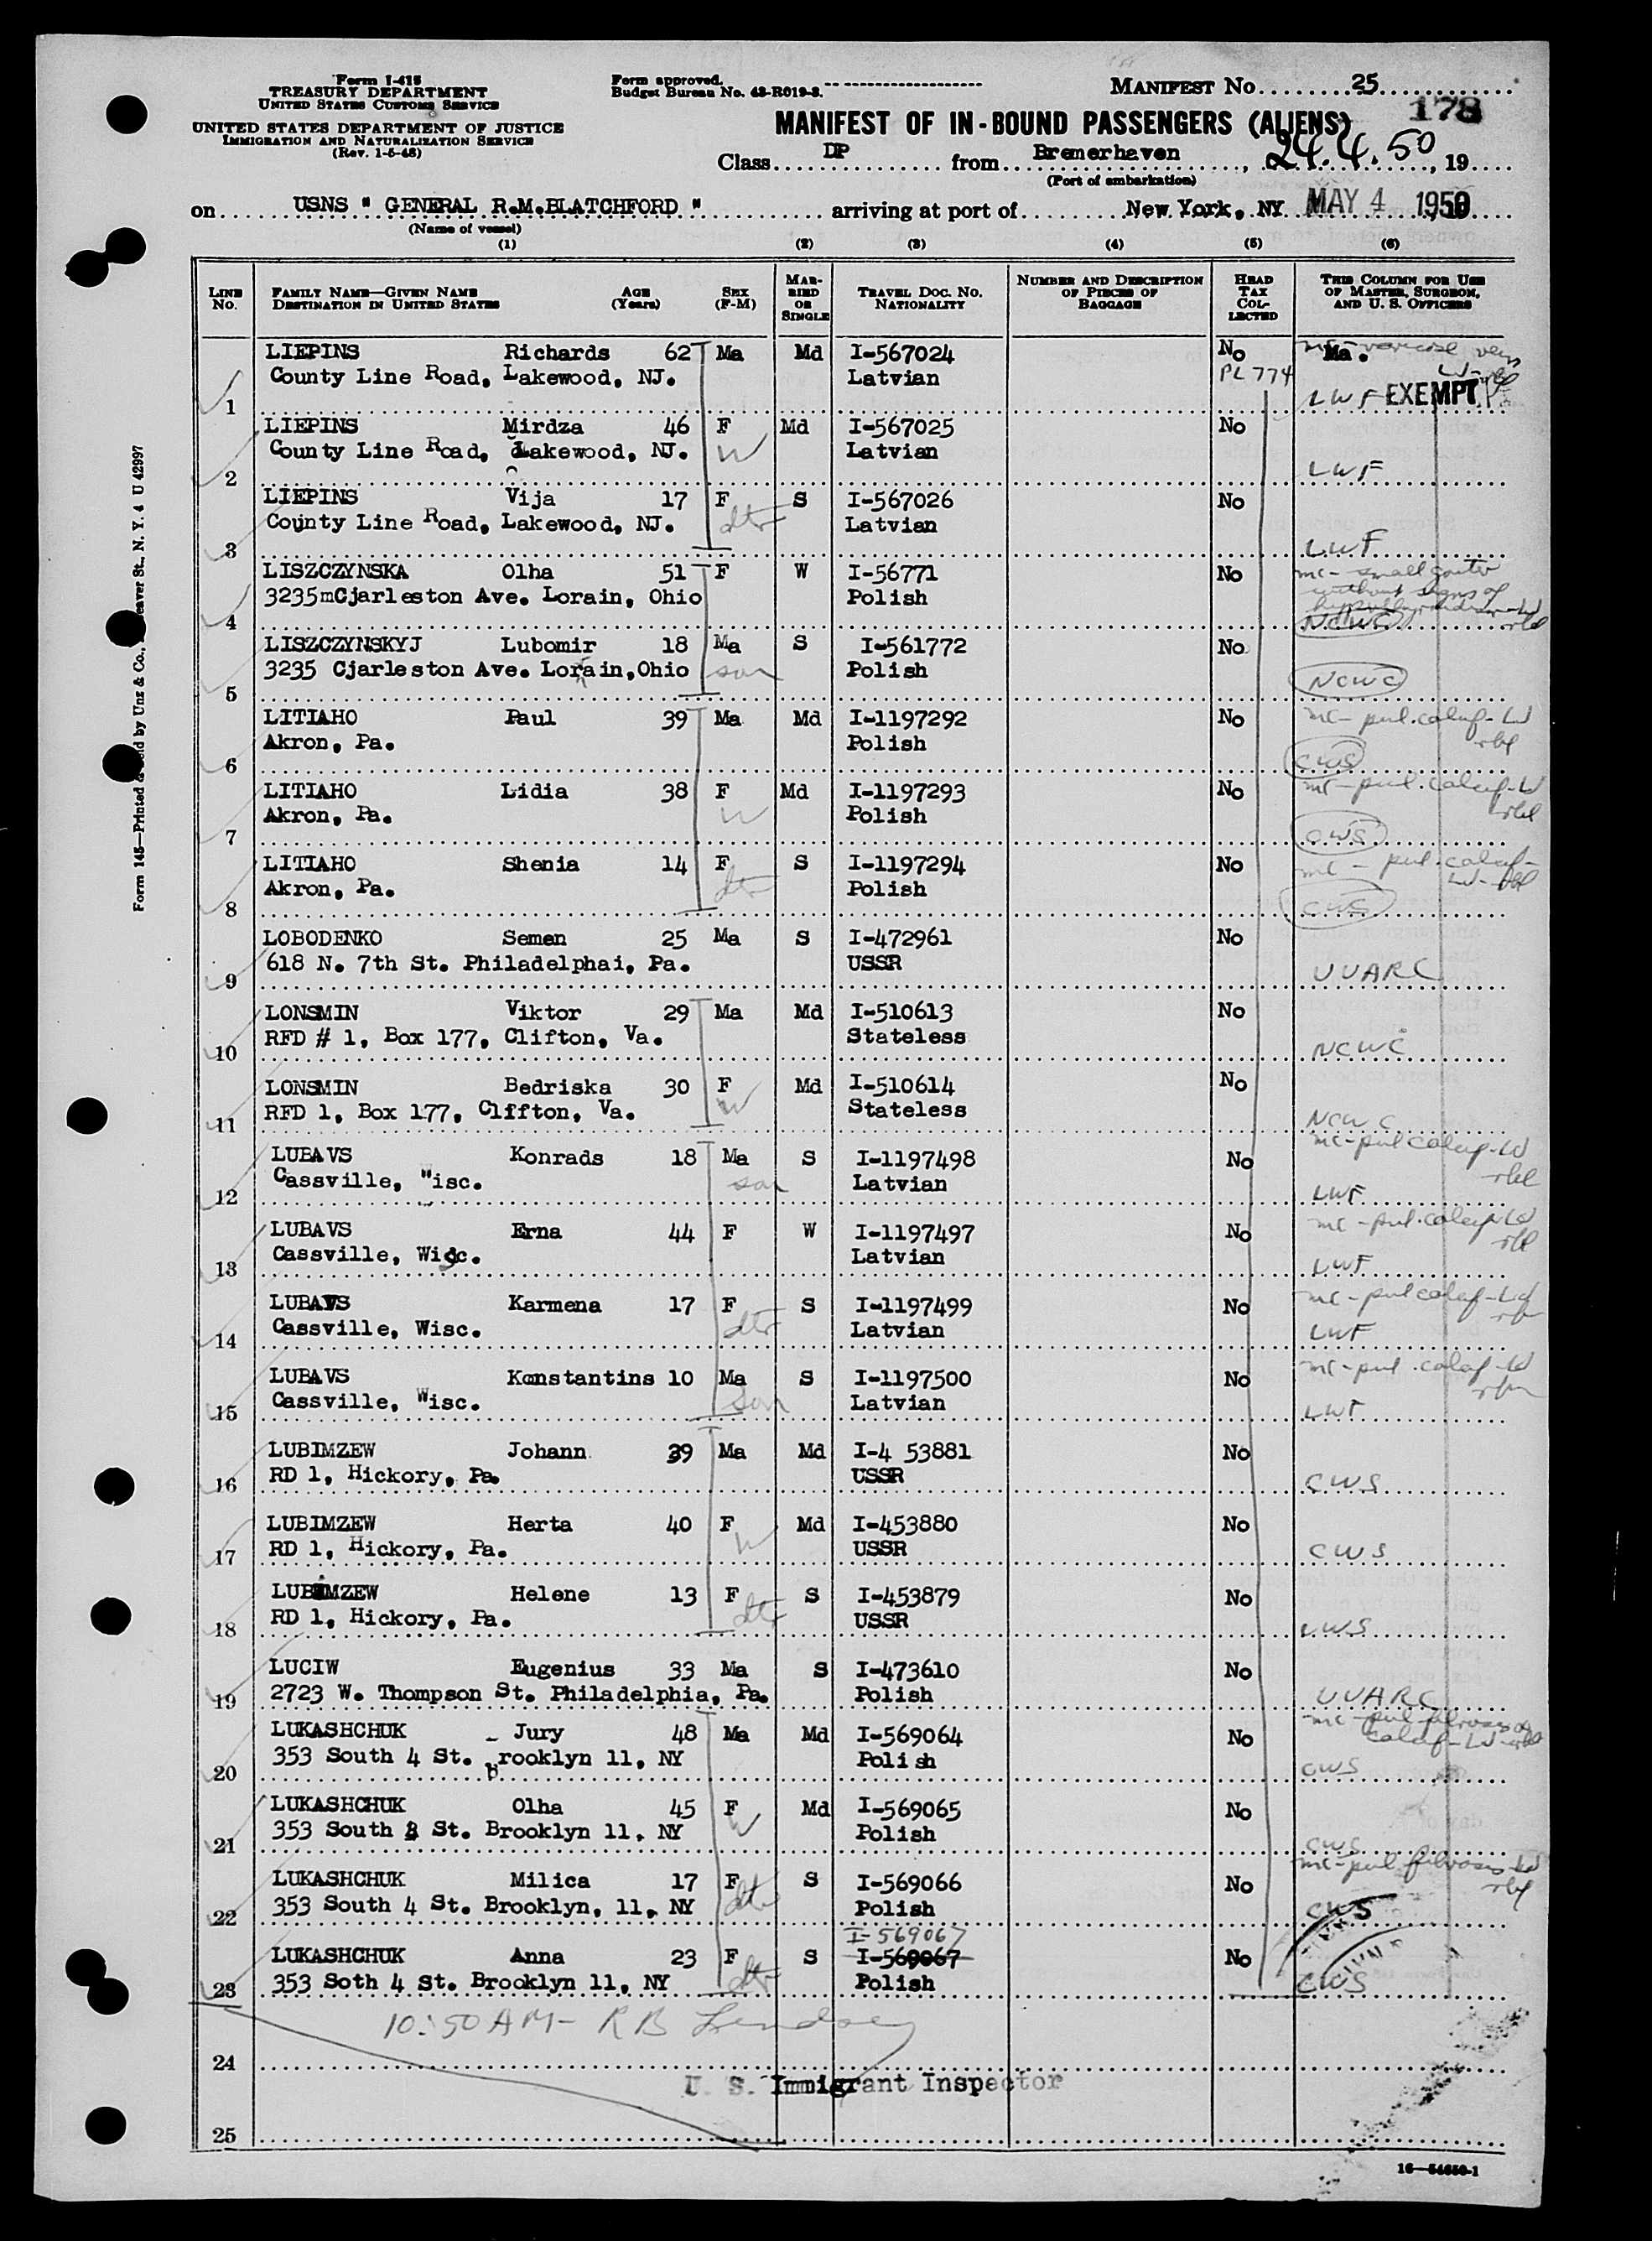 Form I-415
TREASURY DEPARTMENT
UNITED STATES CUSTOMS SERVICE
UNITED STATES DEPARTMENT OF JUSTICE
IMMIGRATION AND NATURALIZATION SERVICE
(Rev. 1-5-48)
Form approved.
Budget Bureau No. 43-R019-3.
MANIFEST No. 25
178
MANIFEST OF IN-BOUND PASSENGERS (ALIENS)
Class DP from Bremerhaven, 24.4.50, 19
(Port of embarkation)
on USNS " GENERAL R.M.BLATCHFORD " arriving at port of New York, NY MAY 4 1950
(Name of vessel)
(1) (2) (3) (4) (5) (6)
LINE No. FAMILY NAME—GIVEN NAME DESTINATION IN UNITED STATES AGE (Years) SEX (F-M) MARRIED OR SINGLE TRAVEL DOC. NO. NATIONALITY NUMBER AND DESCRIPTION OF PIECES OF BAGGAGE HEAD TAX COLLECTED THIS COLUMN FOR USE OF MASTER, SURGEON, AND U. S. OFFICERS
LIEPINS Richards 62 Ma Md I-567024 No Ma. mc-varicose vein
County Line Road, Lakewood, NJ. Latvian PL 774
1 LWF EXEMPT
LIEPINS Mirdza 46 F Md I-567025 No
County Line Road, Lakewood, NJ. W Latvian
2 LWF
LIEPINS Vija 17 F S I-567026 No
County Line Road, Lakewood, NJ. dtr Latvian
3 LWF
LISZCZYNSKA Olha 51 F W I-56771 No mc-small goiter
3235mCjarleston Ave. Lorain, Ohio Polish without signs of
4 NCWC
LISZCZYNSKYJ Lubomir 18 Ma S I-561772 No
3235 Cjarleston Ave. Lorain,Ohio son Polish
5 NCWC
LITIAHO Paul 39 Ma Md I-1197292 No mc-pul.calcif-
Akron, Pa. Polish
6 CWS
LITIAHO Lidia 38 F Md I-1197293 No mc-pul.calcif-
Akron, Pa. W Polish
7 CWS
LITIAHO Shenia 14 F S I-1197294 No mc - pul.calcif-
Akron, Pa. dtr Polish
8 CWS
LOBODENKO Semen 25 Ma S I-472961 No
618 N. 7th St. Philadelphai, Pa. USSR
9 UUARC
LONSMIN Viktor 29 Ma Md I-510613 No
RFD # 1, Box 177, Clifton, Va. Stateless
10 NCWC
LONSMIN Bedriska 30 F Md I-510614 No
RFD 1, Box 177, Clffton, Va. W Stateless
11 NCWC
LUBAVS Konrads 18 Ma S I-1197498 No mc-pul calcif-
Cassville, Wisc. son Latvian
12 LWF
LUBAVS Erna 44 F W I-1197497 No mc-pul.calcif
Cassville, Wisc. Latvian
13 LWF
LUBAVS Karmena 17 F S I-1197499 No mc-pul calcif-
Cassville, Wisc. dtr Latvian
14 LWF
LUBAVS Konstantins 10 Ma S I-1197500 No mc-pul.calcif-
Cassville, Wisc. son Latvian
15 LWF
LUBIMZEW Johann 39 Ma Md I-4 53881 No
RD 1, Hickory, Pa. USSR
16 CWS
LUBIMZEW Herta 40 F Md I-453880 No
RD 1, Hickory, Pa. W USSR
17 CWS
LUBIMZEW Helene 13 F S I-453879 No
RD 1, Hickory, Pa. dtr USSR
18 CWS
LUCIW Eugenius 33 Ma S I-473610 No
2723 W. Thompson St. Philadelphia, Pa. Polish
19 UUARC
LUKASHCHUK Jury 48 Ma Md I-569064 No mc-pul fibrosis
353 South 4 St. Brooklyn 11, NY Polish calcif-
20 CWS
LUKASHCHUK Olha 45 F Md I-569065 No
353 South 4 St. Brooklyn 11, NY W Polish
21 CWS
LUKASHCHUK Milica 17 F S I-569066 No mc-pul fibrosis
353 South 4 St. Brooklyn, 11, NY dtr Polish
22 CWS
I-569067
LUKASHCHUK Anna 23 F S I-569067 No
353 Soth 4 St. Brooklyn 11, NY dtr Polish
23 CWS
10:50 AM- R B Lindsey
24
U. S. Immigrant Inspector
25
16—54650-1
Form 145—Printed by Unz & Co., Beaver St., N. Y. 4 U 42997